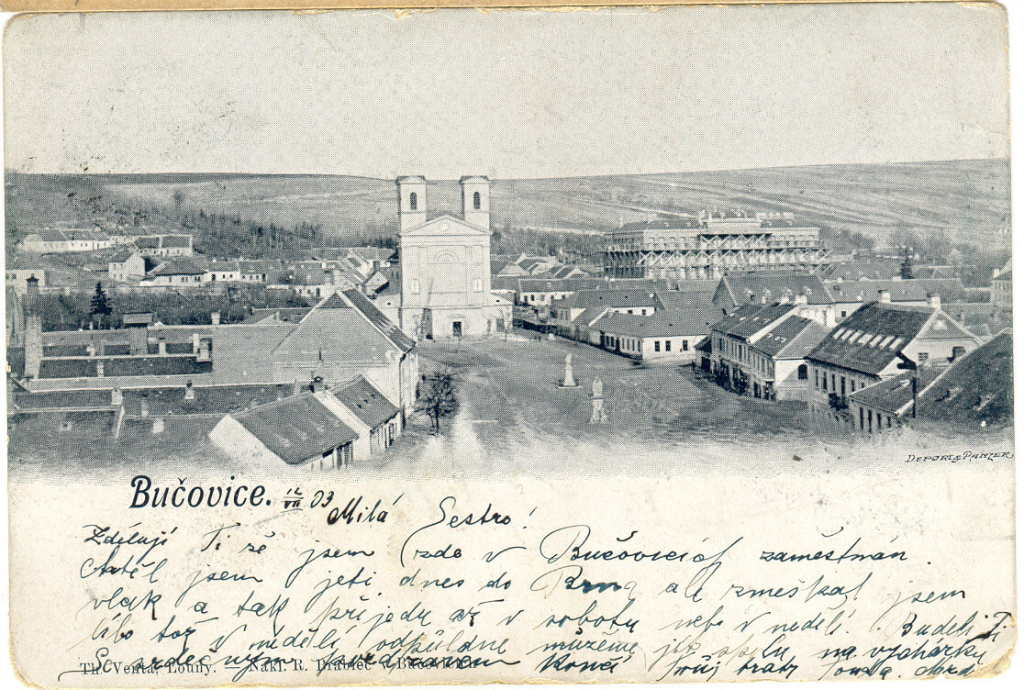 DEPORT & PANZER.
Bučovice. 12/VII 03 Milá Sestro!
Zděluji Ti že jsem zde v Bučovicích zaměstnán.
Chtěl jsem jeti dnes do Brna ale zmeškal jsem
vlak a tak přijedu až v sobotu nebo v neděli. Bude li Ti
libo tož v neděli odpůldne můžeme jít spolu na vycházku
Se srdečným pozdravem končí Tvůj bratr
Th. Venta, Louny. Nákl. R.